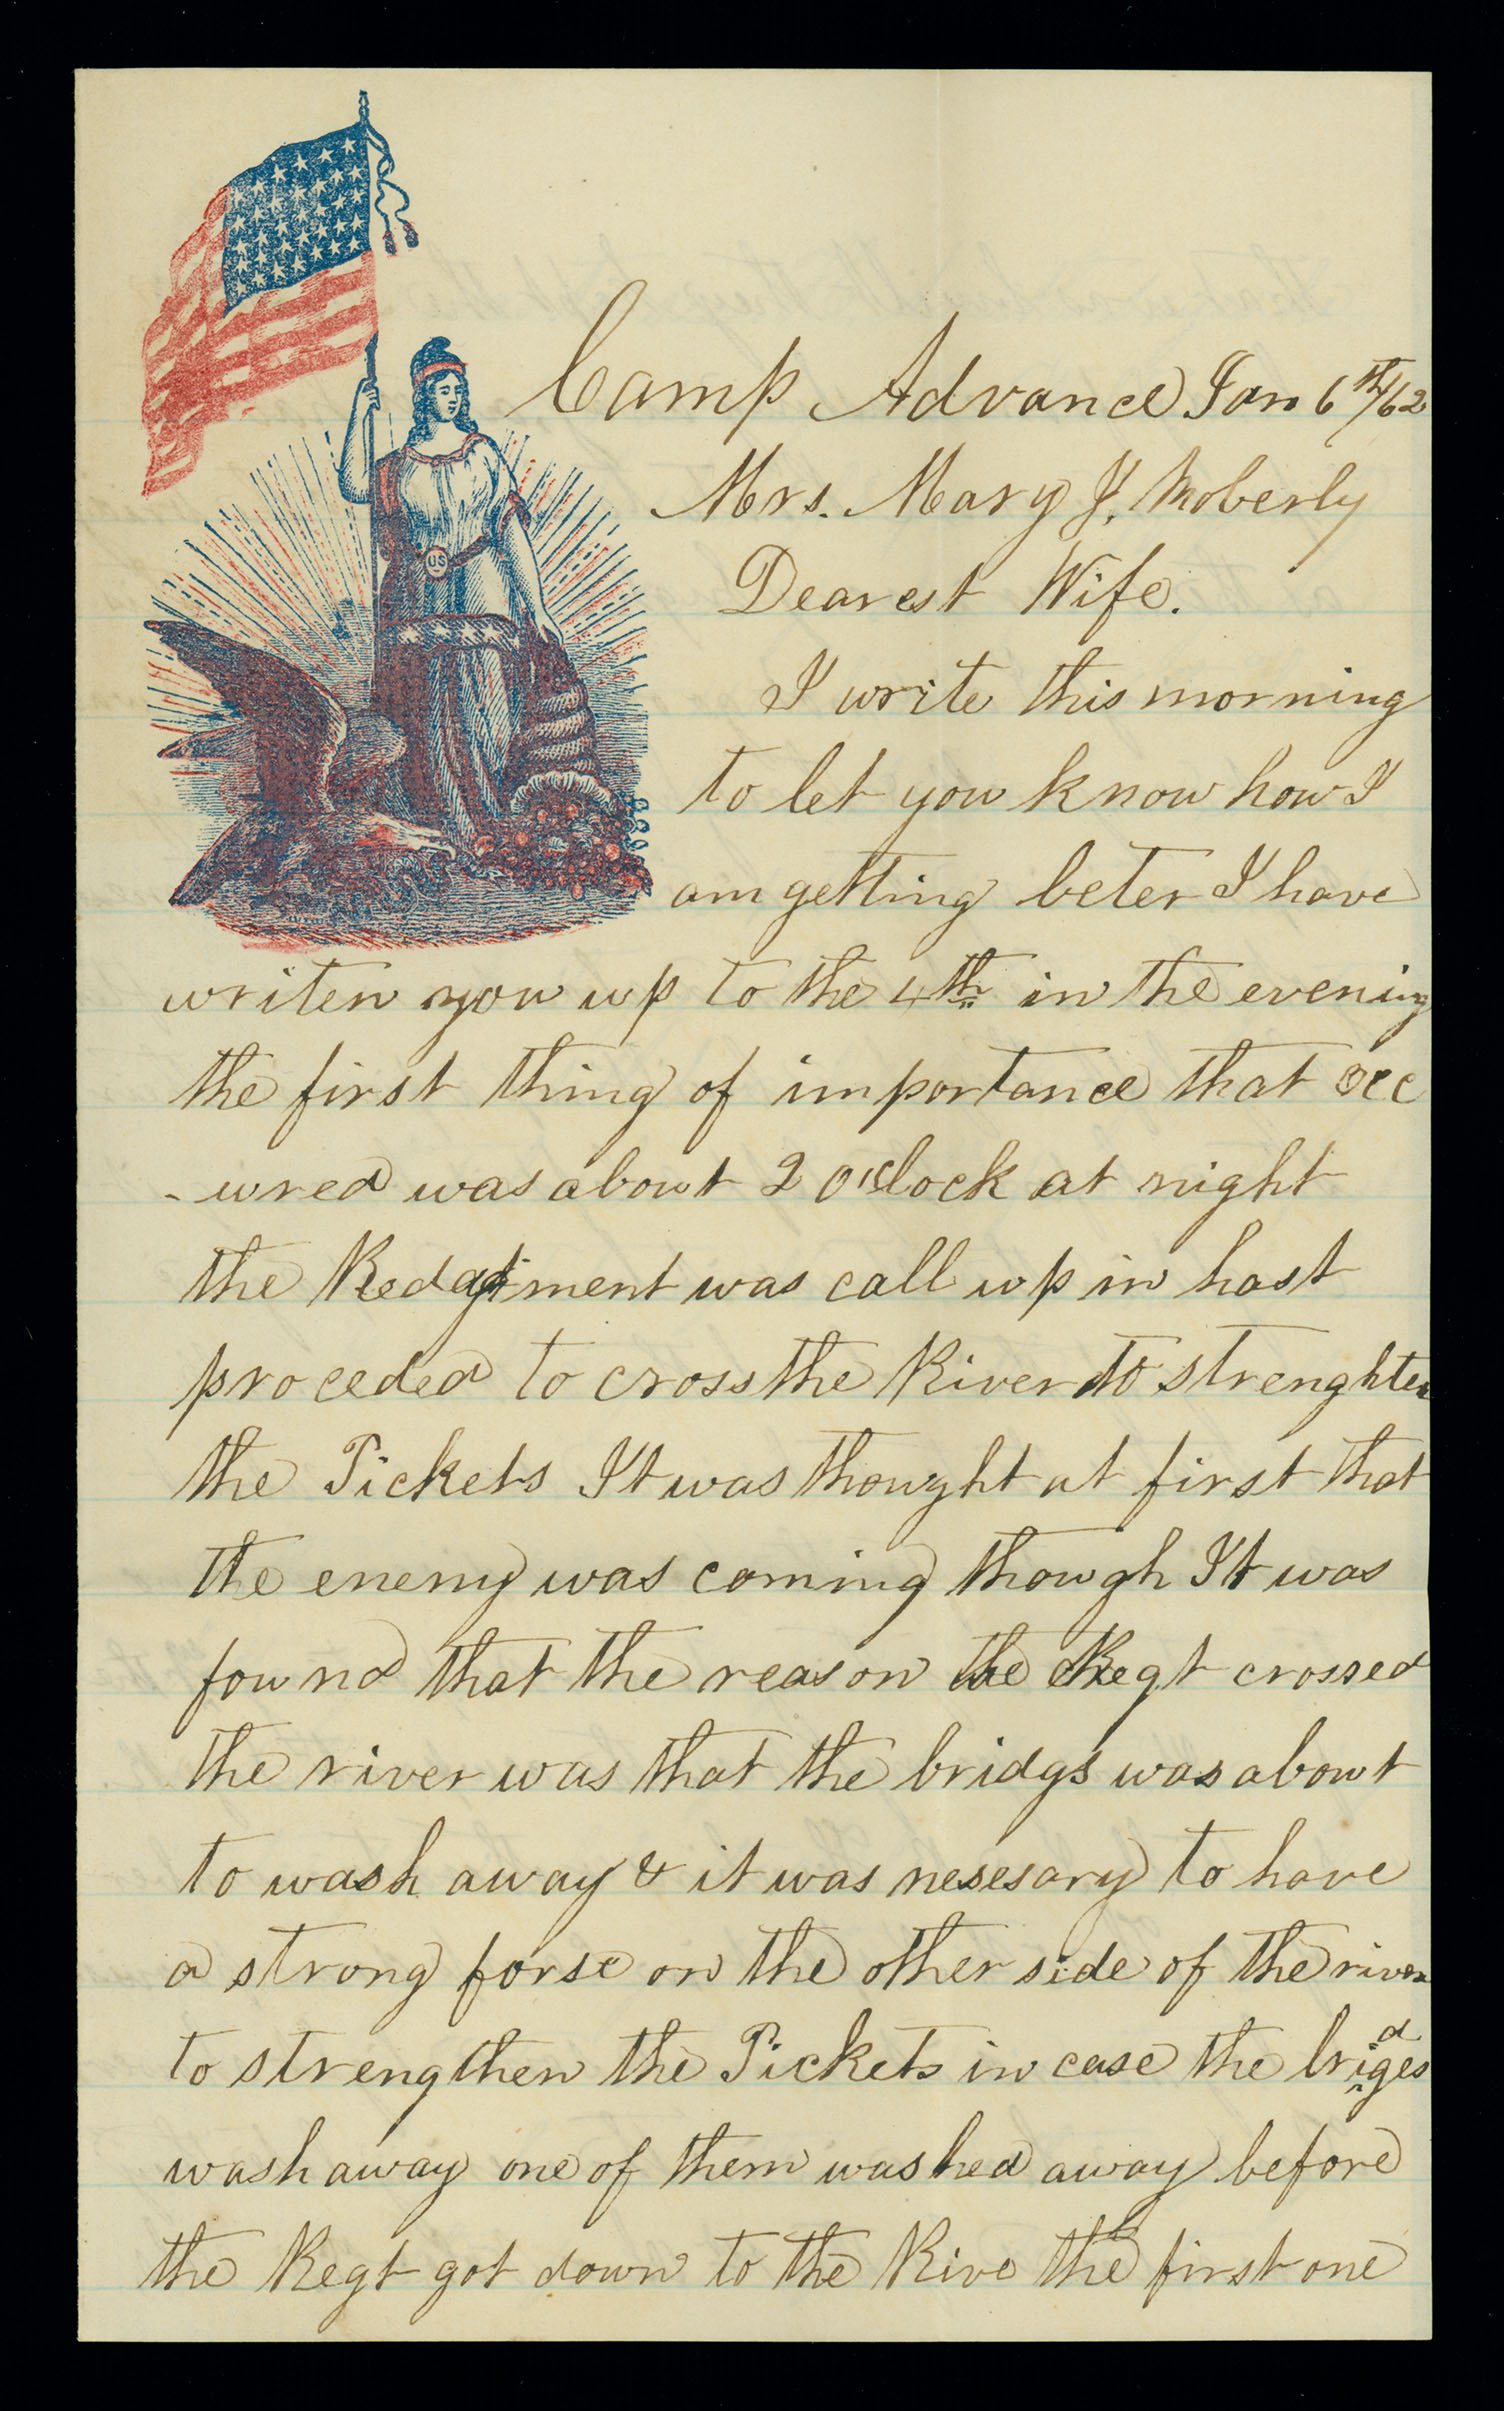 US
Camp Advance Jan 6th/62
Mrs. Mary J. Moberly
Dearest Wife.
I write this morning
to let you know how I
am getting beter I have
writen you up to the 4th in the evening
the first thing of importance that occ
-ured was about 2 o'clock at night
the Redgiment was call up in hast
proceded to cross the River to strenghten
the Pickets It was thought at first that
the enemy was coming though It was
found that the reason the Regt crossed
the river was that the bridgs was about
to wash away & it was nesesary to have
a strong forse on the other side of the river
to strengthen the Pickets in case the bridges
wash away one of them washed away before
the Regt got down to the Rive the first one